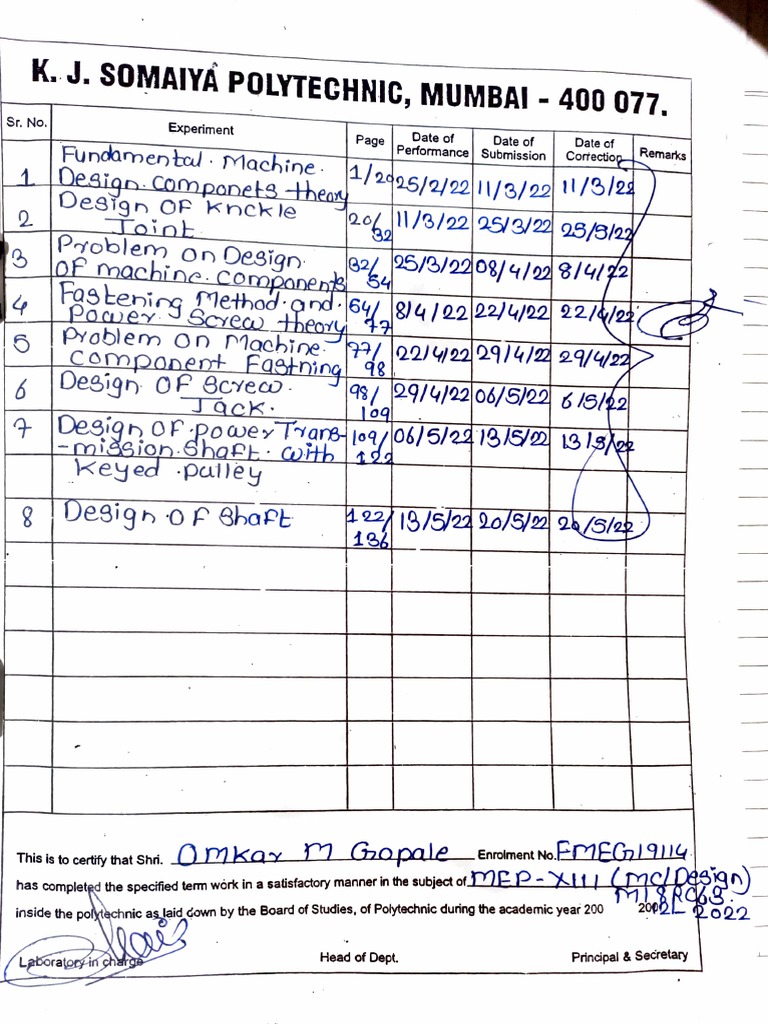 K. J. SOMAIYA POLYTECHNIC, MUMBAI - 400 077.
Sr. No. Experiment Page Date of Performance Date of Submission Date of Correction Remarks
1 Fundamental Machine 1/20 25/2/22 11/3/22 11/3/22
Design componets theory
2 Design OF Knckle 20/32 11/3/22 25/3/22 25/3/22
Joint
3 Problem on Design 32/54 25/3/22 08/4/22 8/4/22
OF machine components
4 Fastening Method and 54/77 8/4/22 22/4/22 22/4/22
Power Screw theory
5 Problem on Machine 77/98 22/4/22 29/4/22 29/4/22
component Fastning
6 Design OF Screw 98/109 29/4/22 06/5/22 6/5/22
Jack.
7 Design OF power Trans- 109/122 06/5/22 13/5/22 13/5/22
-mission Shaft with
keyed pulley
8 Design OF Shaft 122/136 13/5/22 20/5/22 20/5/22
This is to certify that Shri. Omkar M Gopale Enrolment No. FMEG19114
has completed the specified term work in a satisfactory manner in the subject of MEP-XIII (MC/Design)
inside the polytechnic as laid down by the Board of Studies, of Polytechnic during the academic year 200 2022
Laboratory in charge Head of Dept. Principal & Secretary